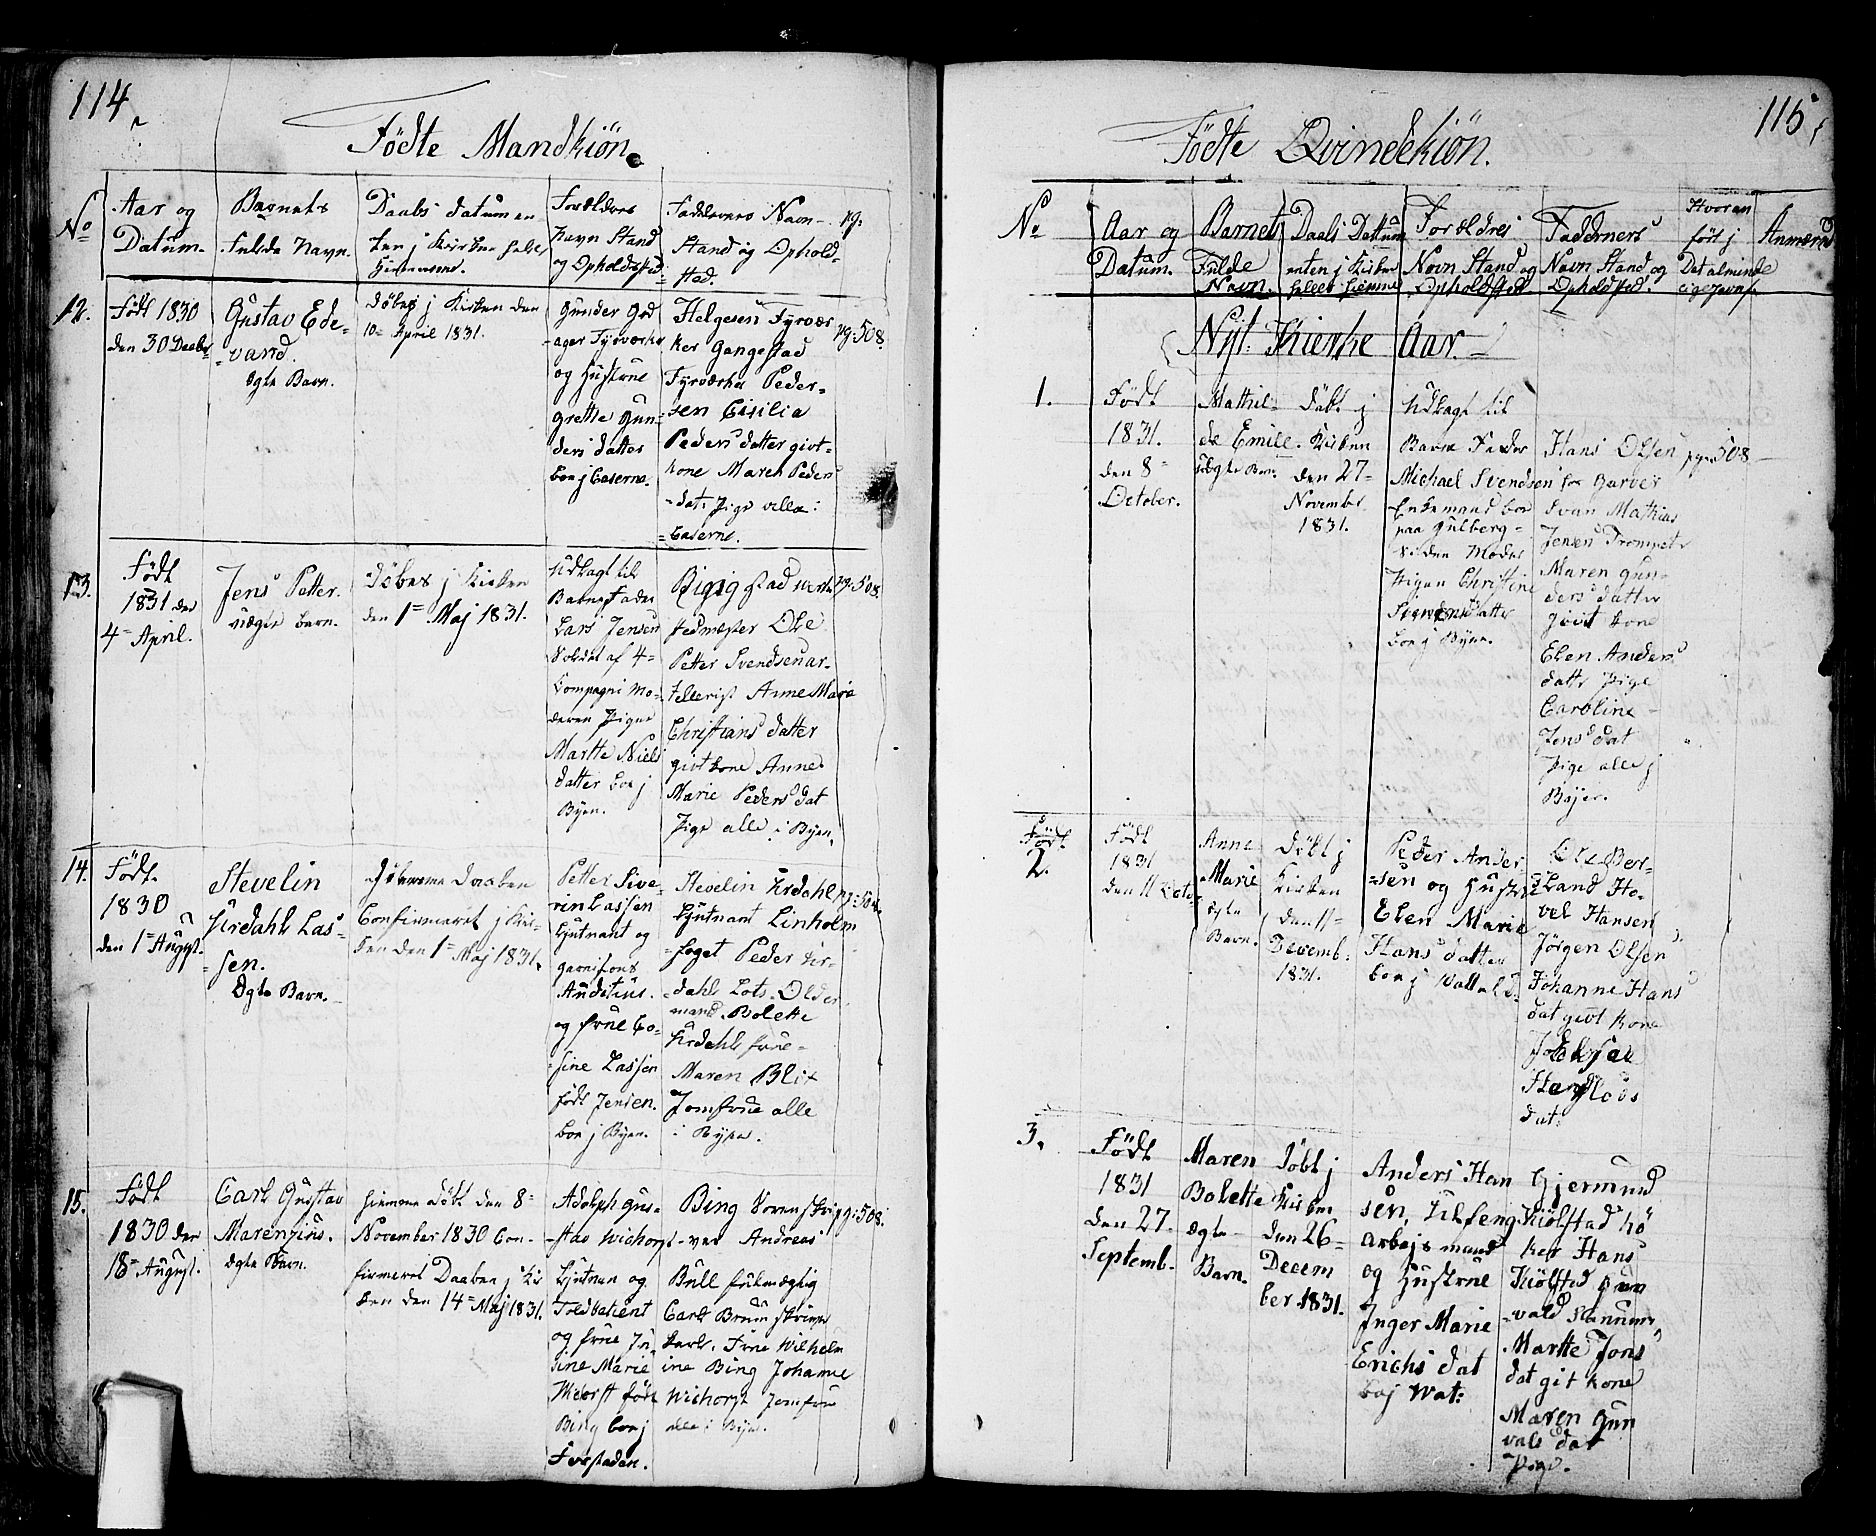 114
Födte Mandkiön
No
Aar og
Datum.
Barnets
Fulde Navn.
Daabs Datum en
ten j Kirken heler
Hiemme.
Foreldres
Navn Stand
og Opholdssted
Faddernes Navn
Stand og Ophold-
sted.
pg:
12.
Født 1830
den 30 Decbr
Gustav Ede-
vand.
Egte Barn.
Döbes j Kirken den
10= April 1831.
Gunder God
ager Fyrverker
og Hustrue
Grethe Gun-
ders datter
boe j Caserne.
Helgesen Fyrvær
ker Gangestad
Fyrverker Peder-
sen Cisilia
Peders datter givt-
kone Maren Peders
dat: Pige alle i
Caserne.
pg: 508.
13.
Födt
1831 den
4= April.
Jens Petter.
uægte barn.
Döbes j Kirken
den 1= Maj 1831.
Udlagt til
Barnefader
Lars Jensen
Soldat af 4=
Compagni Mo-
deren Pigen
Marthe Niels
datter boe j
Byen.
Petter Svendsen ar-
tillerist Anne Maria
Christians datter
givt kone Anne
Marie Peders dat
Pige alle i Byen.
pg: 508
14.
Födt
1830
den 1= Augyst.
Stevelin
Urdahl Las-
sen.
Egte Barn.
Hiemme Daaben
Confirmeret j Kir-
ken den 1= Maj 1831.
Petter Sive-
rin Lassen
Ljutnant og
garnisons
Auditeur.
og frue Co-
sine Lassen
födt Jensen.
boe j Byen.
Stevelin Urdahl
Ljutnant Linholm
foget Peder Ur-
dahl Lots-Older
mand. Bolette
Urdahl frue-
Maren Blix
Jomfrue alle
i Byen.
pg: 508.
15.
Födt
1830 den
18= August.
Carl Gustav
Marenzius.
Egte Barn.
Hiemme Döbt den 8=
November 1830 Con-
firmeret Daaben j Kir
ken den 14= Maj 1831.
Adolph Gus-
tav Wichorst
Ljutnan og
Toldbetient
og frue Ju-
sine Marie
Wichorst föde
Bing boe j
Forstaden.
Bing Sorenskri-
ver Andreas
Bull fulmægtig
Carl Bruun skriver
karl. Frue Wilhelm
ine Bing Johanne
Wichorst Jomfrue
alle i Byen.
pg: 508.
115
Födte Qvindekiön.
No
Aar og
Datum.
Barnets
Fulde
Navn.
Daabs Dattum
enten j Kirken
heller hiemme
Foreldres
Navn Stand og
Opholdsted.
Faddernes
Navn Stand og
Opholdsted.
Hvor an
fört j
Det alminde
lige Jevnf.
Anmærk
Nyt Kierke Aar.
1.
Födt
1831.
den 8=
October.
Mathil-
de Emilie.
uægte Barn.
Döbt j
Kirken
den 27=
November
1831.
Udlagt til
Barne Fader
Michael Svendsen
Enkemand boe
paa Gulberg-
siden Moder
Pigen Christine
Svendsdatter
boe j Byen.
Hans Olsen
Barber
Svan Mathias
Jensen Trompeter
Maren Gun-
ders datter
givt kone
Elen Anders
datter Pige
Caroline
Jens dat
Pige alle j
Byen.
pagna 508
Födt
2.
Födt
1831
den 11 Octo
Anne
Marie
ægte
Barn.
Döbt j
Kirken
den 11=
Decemb:
1831.
Peder Ander
sen og Hustrue
Elen Marie
Hans datter
boe j
Ole Ber-
Land Ho-
vel Hansen
Jörgen Olsen
Johanne Hans
dat givt kone
dat:
3.
Födt
1831
den 27.
Septemb.
Maren
Bolette
ægte
Barn.
Döbt j
Kirken
den 26=
Decem
ber 1831.
Anders Han
sen,
arbejsmand
og Hustrue
Inger Marie
Erichs dat
boj Wat:
Gjermund
Kiölstad hö
ker Hans
Kiölstad Gun
vald
Marthe Jons
dat git kone
Maren Gun
vals dat
Pige.